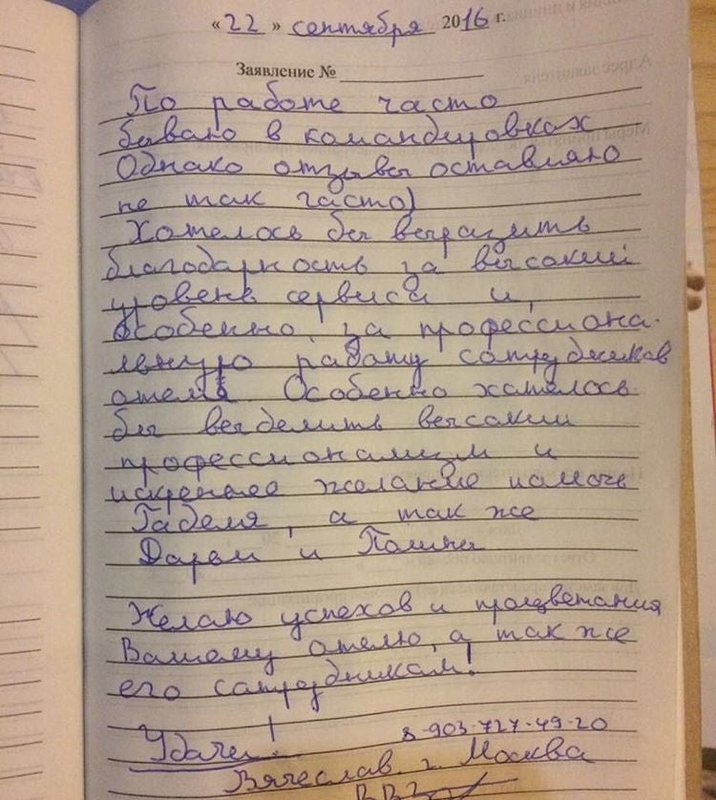 «22» сентября 2016 г.
Заявление №
По работе часто
бываю в командировках
Однако отзывы оставляю
не так часто)
Хотелось бы выразить
благодарность за высокий
уровень сервиса и,
особенно, за профессиона-
льную работу сотрудников
отеля Особенно хотелось
бы выделить высокий
профессионализм и
искреннее желание помочь
а так же
Дарьи и Полины
Желаю успехов и процветания
Вашему отелю, а так же
его сотрудникам!
Удачи!
8-903-727-49-20
Вячеслав г. Москва